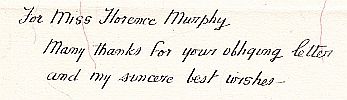 For Miss Florence Murphy
Many thanks for your obliging letter
and my sincere best wishes –